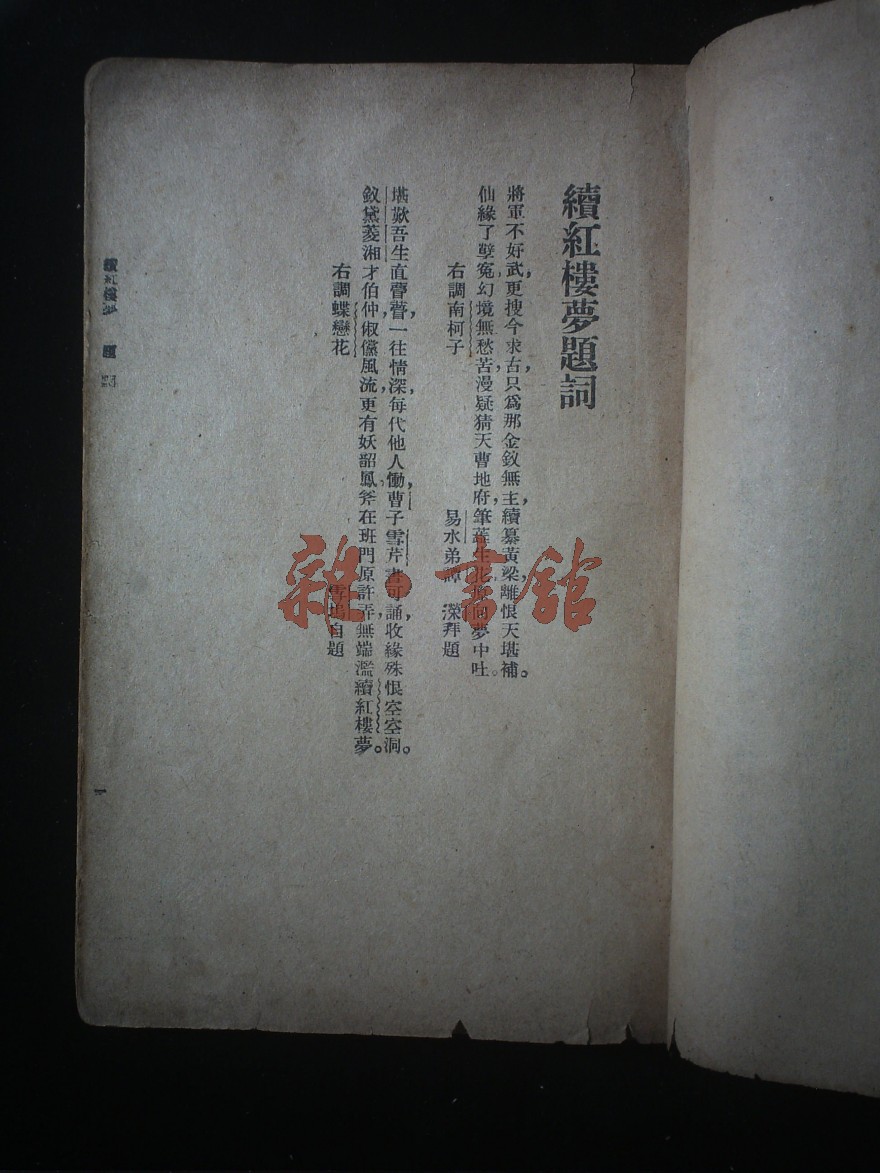 續紅樓夢題詞
將軍不好武，更搜今求古，只為那金釵無主，續纂黃梁，離恨天堪補。
仙緣了孽冤，幻境無愁苦，漫疑猜天曹地府，筆蓮生花，向夢中吐。
右調南柯子
易水弟譚 濚拜題
堪歎吾生直瞢瞢，一往情深，每代他人慟，曹子雪芹書可誦，收緣殊恨空空洞。
釵黛菱湘才伯仲，俶儻風流，更有妖韶鳳，斧在班門原許弄，無端濫續紅樓夢。
右調蝶戀花
雪塢自題
續紅樓夢 題詞
一
雜·書館